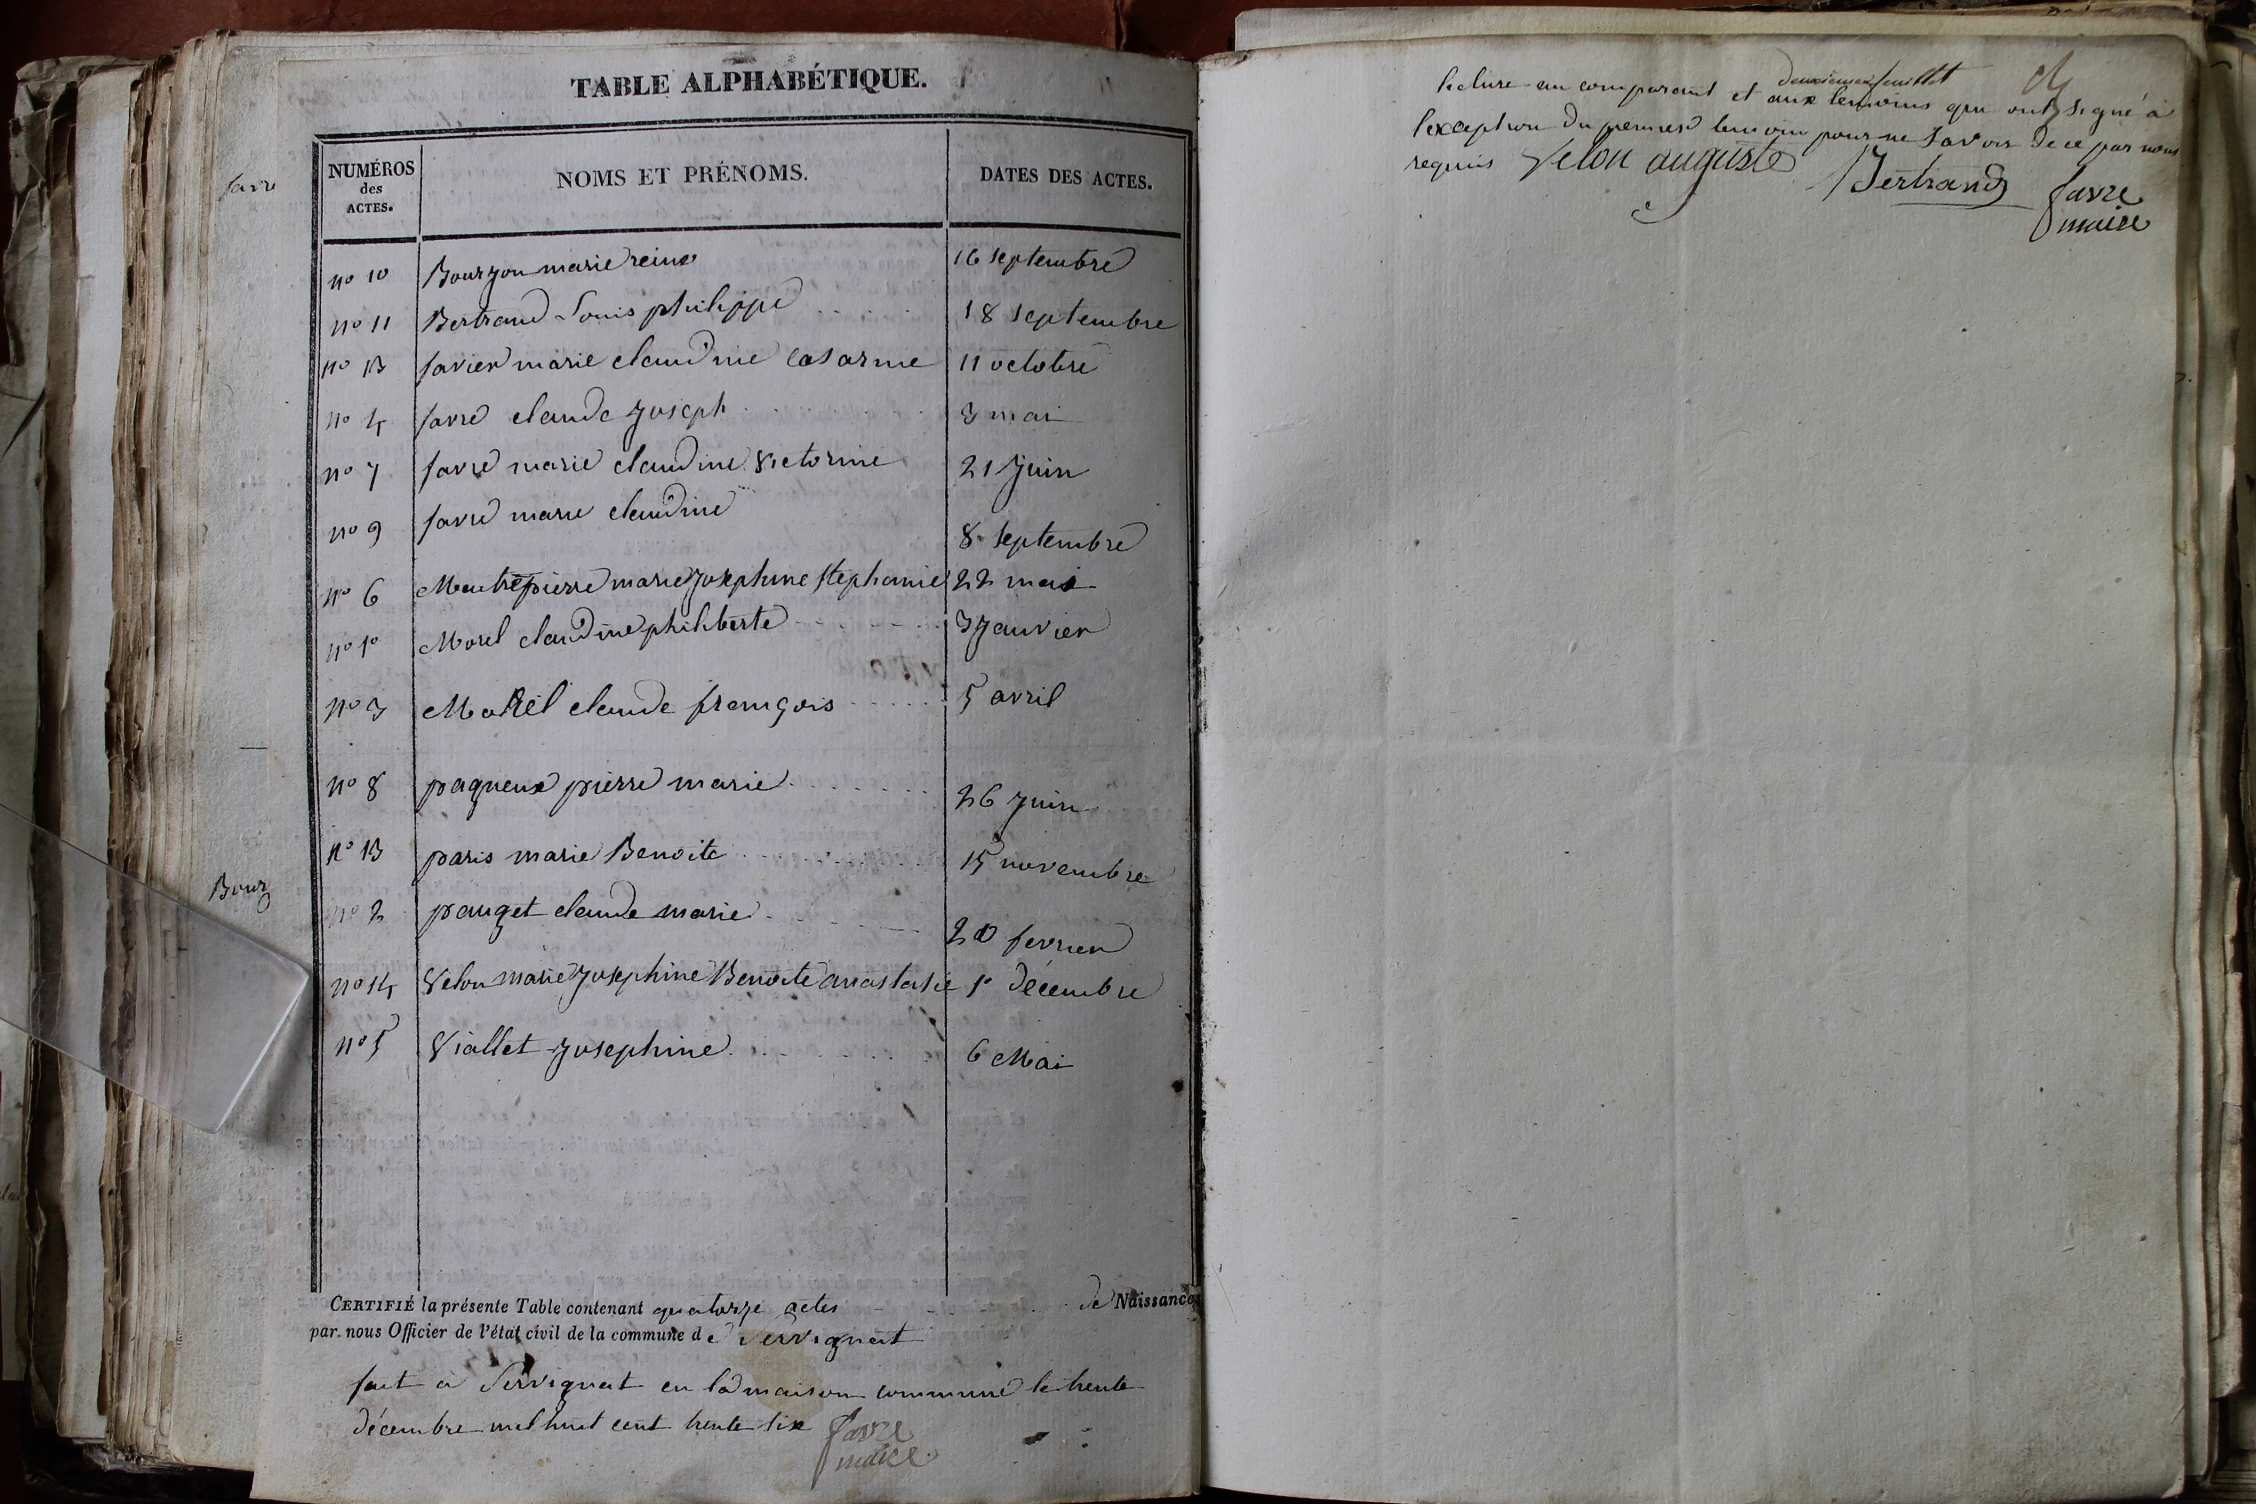 TABLE ALPHABÉTIQUE.
NUMÉROS
des
ACTES.
NOMS ET PRÉNOMS.
DATES DES ACTES.
favre
no 10 Bourzon marie reine 16 septembre
no 11 Bertrand Louis philippe 18 septembre
no 13 favier marie claudine 11 octobre
no 4 favre claude joseph 3 mai
no 7 favre marie claudine victorine 21 juin
no 9 favre marie claudine 8 septembre
no 6 marie josephine stephanie 22 mai
no 1o Morel claudine philiberte 3 janvier
no 3 claude françois 5 avril
no 8 paqueux pierre marie 26 juin
no 13 paris marie Benoite 15 novembre
Bourz
no 2 pauget claude marie 20 fevrier
no 14 Velon marie josephine Benoite anastasie 1o décembre
no 5 Viallet josephine 6 Mai
CERTIFIÉ la présente Table contenant quatorze actes de Naissances
par nous Officier de l'état civil de la commune de Servignat
fait a Servignat en la maison commune le trente
décembre mil huit cent trente six favre
maire
deuxieme feuillet
lecture au comparant et aux temoins qui ont signé à
l'exception du premier temoin pour ne savoir de ce par nous
requis Velon auguste
Bertrand favre
maire